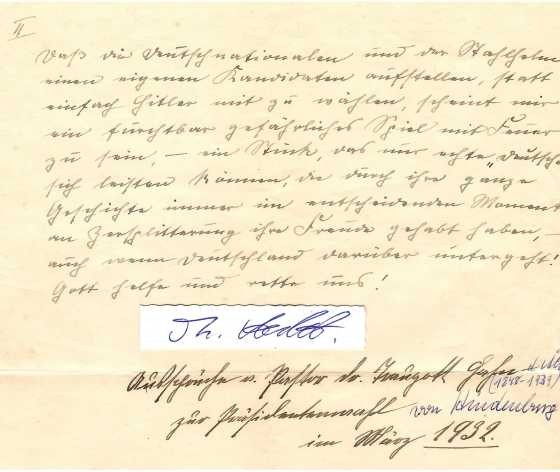 II
Daß die Deutschnationalen und der Stahlhelm
einen eigenen Kandidaten aufstellen, statt
einfach Hitler mit zu wählen, scheint mir
ein furchtbar gefährliches Spiel mit Feuer
zu sein, – ein Stück, das nur echte „Deutsche
sich leisten können, die durch ihre ganze
Geschichte immer im entscheidenden Moment
an Zersplitterung ihre Freude gehabt haben, –
auch wenn Deutschland darüber untergeht!
Gott helfe und rette uns!
Th.
Aussprüche v. Pastor Dr. Traugott Hahn
(1848-1939)
zur Präsidentenwahl von Hindenburg
im März 1932.